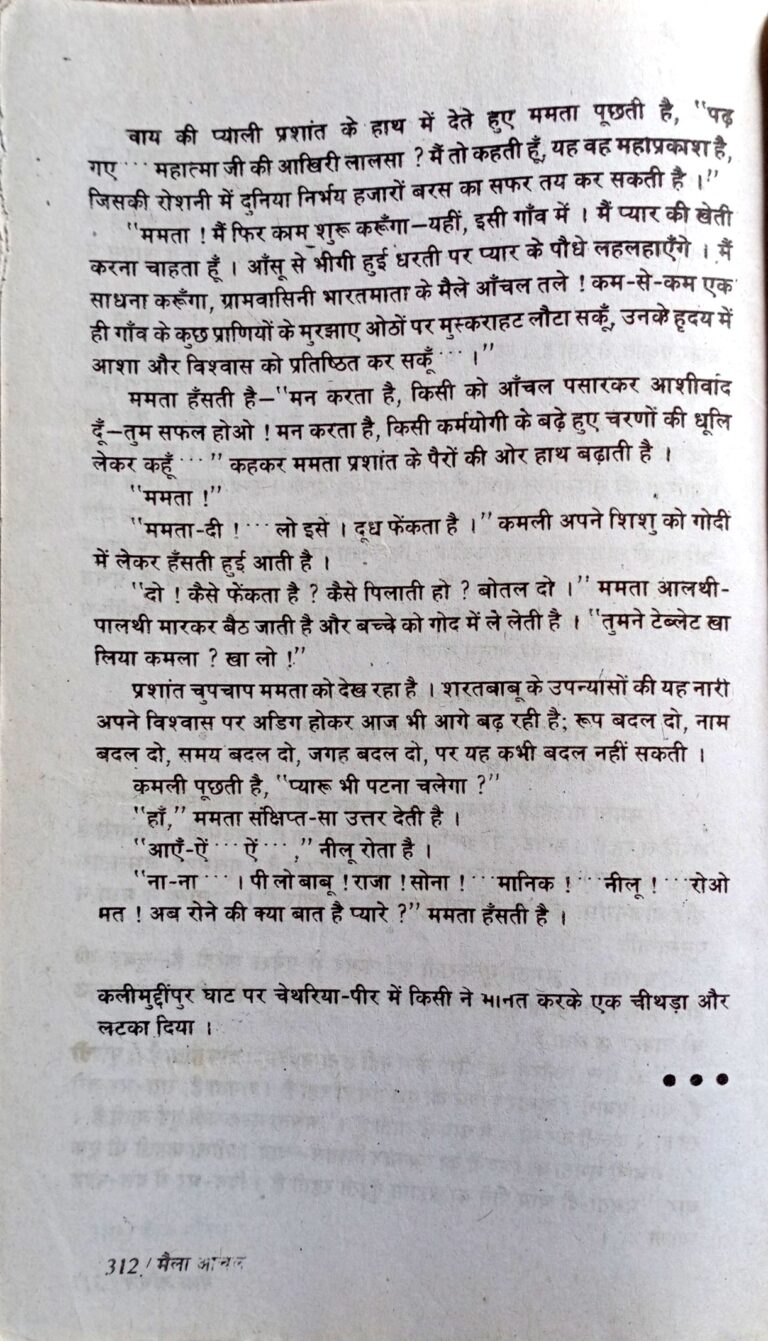 चाय की प्याली प्रशांत के हाथ में देते हुए ममता पूछती है, “पढ़
गए ··· महात्मा जी की आखिरी लालसा ? मैं तो कहती हूँ, यह वह महाप्रकाश है,
जिसकी रोशनी में दुनिया निर्भय हजारों बरस का सफर तय कर सकती है ।”
“ममता ! मैं फिर काम शुरू करूँगा—यहीं, इसी गाँव में । मैं प्यार की खेती
करना चाहता हूँ । आँसू से भीगी हुई धरती पर प्यार के पौधे लहलहाएँगे । मैं
साधना करूँगा, ग्रामवासिनी भारतमाता के मैले आँचल तले ! कम-से-कम एक
ही गाँव के कुछ प्राणियों के मुरझाए ओठों पर मुस्कराहट लौटा सकूँ, उनके हृदय में
आशा और विश्वास को प्रतिष्ठित कर सकूँ ··· ।”
ममता हँसती है—“मन करता है, किसी को आँचल पसारकर आशीर्वाद
दूँ—तुम सफल होओ ! मन करता है, किसी कर्मयोगी के बढ़े हुए चरणों की धूलि
लेकर कहूँ ···” कहकर ममता प्रशांत के पैरों की ओर हाथ बढ़ाती है ।
“ममता !”
“ममता-दी ! ··· लो इसे । दूध फेंकता है ।” कमली अपने शिशु को गोदी
में लेकर हँसती हुई आती है ।
“दो ! कैसे फेंकता है ? कैसे पिलाती हो ? बोतल दो ।” ममता आलथी-
पालथी मारकर बैठ जाती है और बच्चे को गोद में ले लेती है । “तुमने टेब्लेट खा
लिया कमला ? खा लो !”
प्रशांत चुपचाप ममता को देख रहा है । शरतबाबू के उपन्यासों की यह नारी
अपने विश्वास पर अडिग होकर आज भी आगे बढ़ रही है; रूप बदल दो, नाम
बदल दो, समय बदल दो, जगह बदल दो, पर यह कभी बदल नहीं सकती ।
कमली पूछती है, “प्यारू भी पटना चलेगा ?”
“हाँ,” ममता संक्षिप्त-सा उत्तर देती है ।
“आएँ-ऐं ··· ऐं ···,” नीलू रोता है ।
“ना-ना ··· । पी लो बाबू ! राजा ! सोना ! ··· मानिक ! ··· नीलू ! ··· रोओ
मत ! अब रोने की क्या बात है प्यारे ?” ममता हँसती है ।
कलीमुद्दींपुर घाट पर चेथरिया-पीर में किसी ने मानत करके एक चीथड़ा और
लटका दिया ।
● ● ●
312 / मैला आँचल